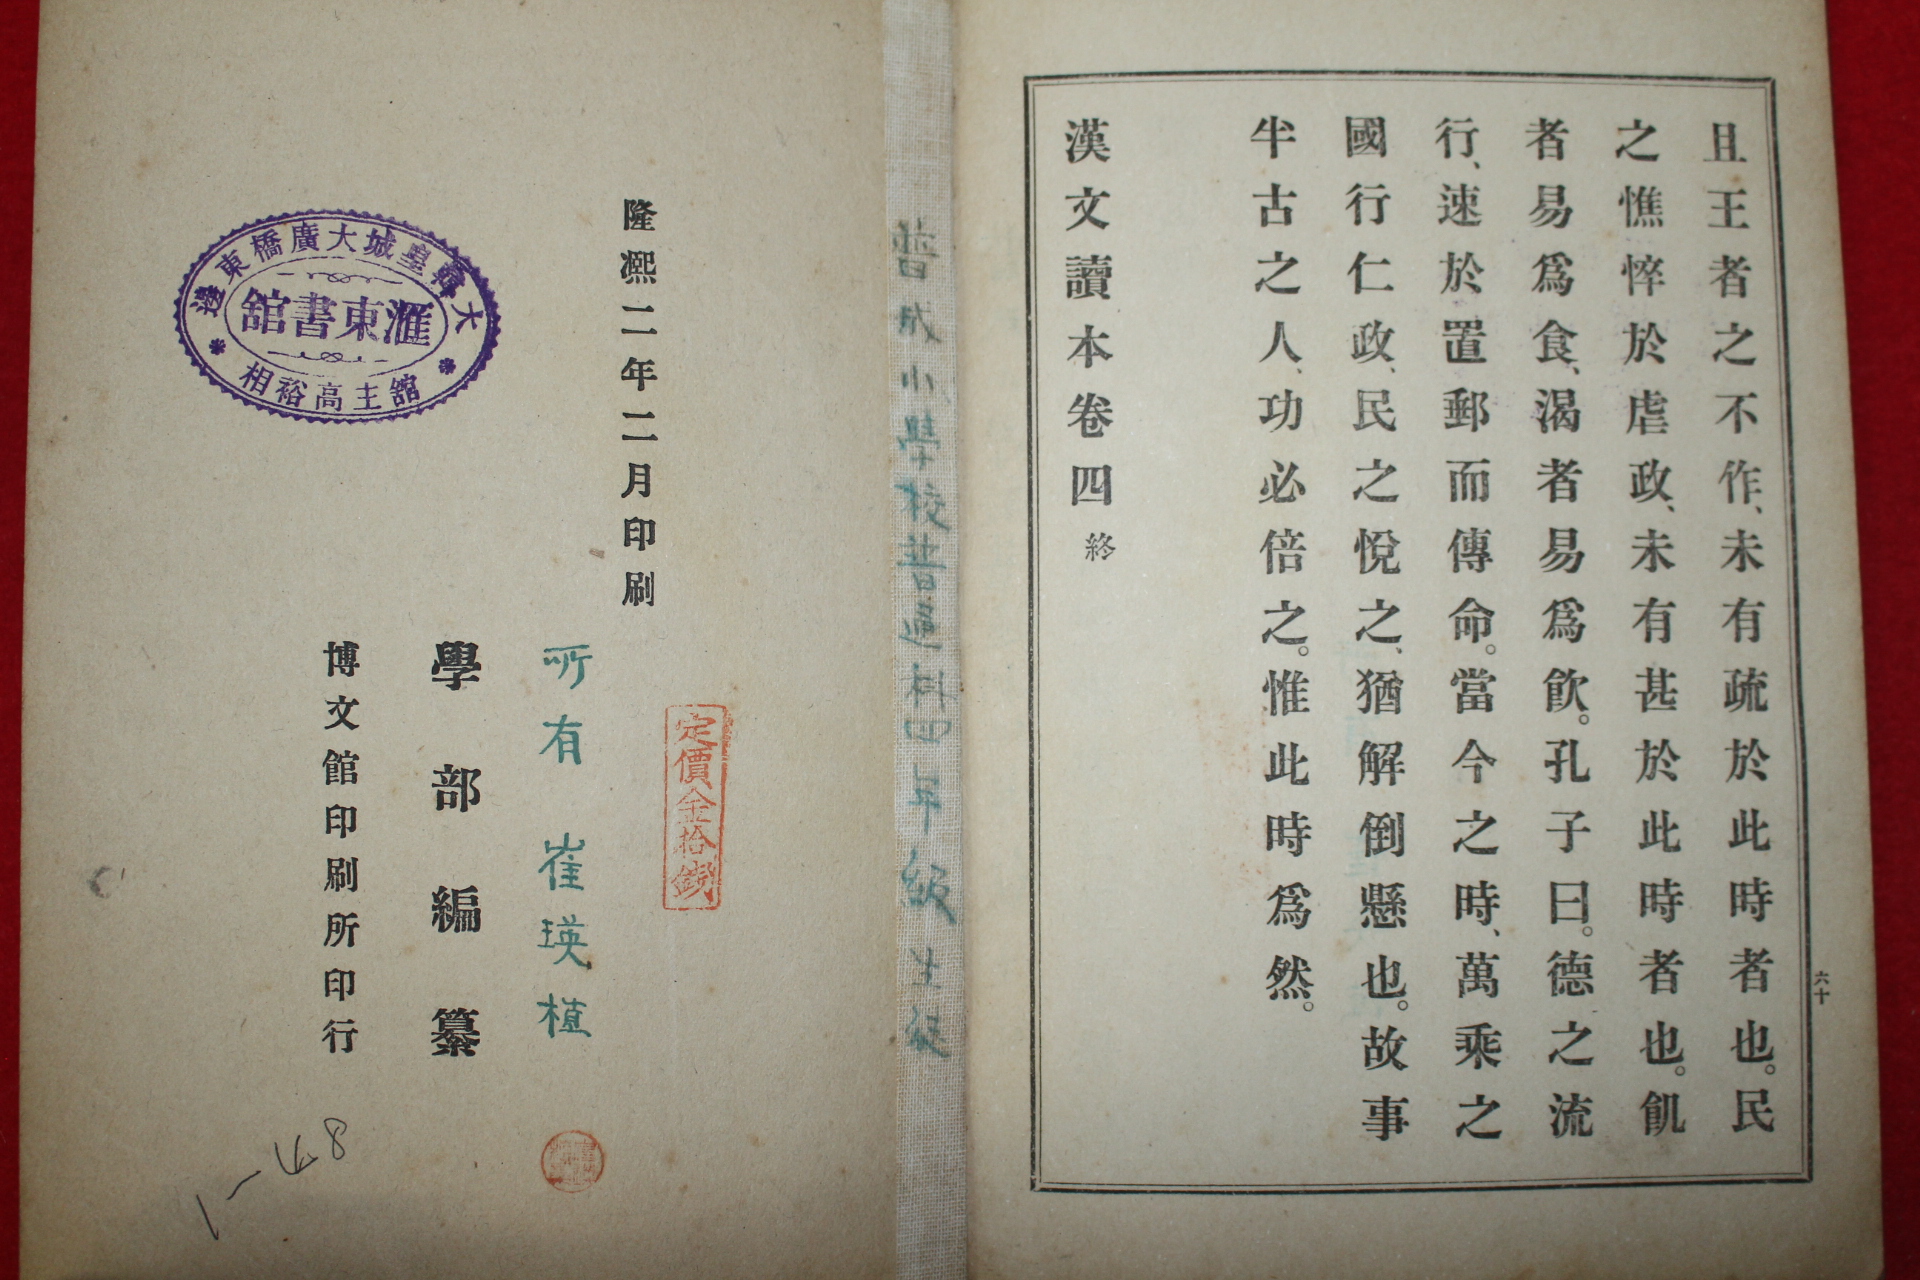 且王者之不作、未有疏於此時者也。民
之憔悴於虐政、未有甚於此時者也。飢
者易爲食、渴者易爲飮。孔子曰。德之流
行、速於置郵而傳命。當今之時、萬乘之
國行仁政、民之悅之、猶解倒懸也。故事
半古之人、功必倍之。惟此時爲然。
漢文讀本卷四終
六十
普成小學校普通科四年級生徒
定價金拾錢
隆熙二年二月印刷
所有 崔瑛植
學部編纂
博文館印刷所印行
大韓皇城大廣橋東邊
滙東書舘
舘主高裕相
1-48